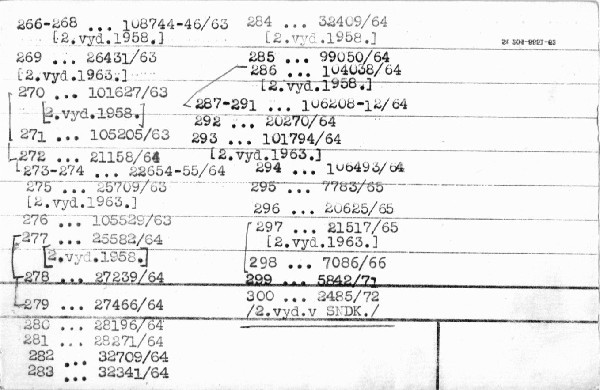 266-268 ... 108744-46/63
[2.vyd.1958.]
269 ... 26431/63
[2.vyd.1963.]
270 ... 101627/63
[2.vyd.1958.]
271 ... 105205/63
272 ... 21158/64
273-274 ... 22654-55/64
275 ... 25709/63
[2.vyd.1963.]
276 ... 105529/63
277 ... 25582/64
[2.vyd.1958.]
278 ... 27239/64
279 ... 27466/64
280 ... 28196/64
281 ... 28271/64
282 ... 32709/64
283 ... 32341/64
284 ... 32409/64
[2.vyd.1958.]
285 ... 99050/64
286 ... 104038/64
[2.vyd.1958.]
287-291 ... 106208-12/64
292 ... 20270/64
293 ... 101794/64
[2.vyd.1963.]
294 ... 106493/64
295 ... 7783/65
296 ... 20625/65
297 ... 21517/65
[2.vyd.1963.]
298 ... 7086/66
299 ... 5842/71
300 ... 2485/72
/2.vyd.v SNDK./